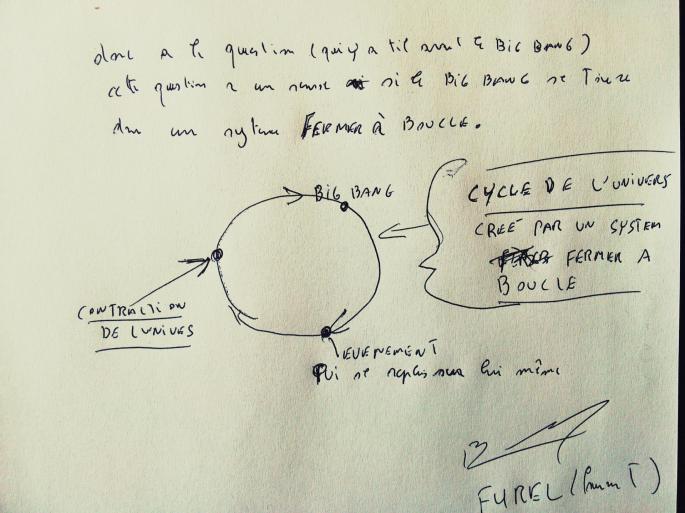 donc a la question (qui y a til avant le BIG BANG)
cette question a un sense si le BIG BANG se Trouve
dans un systeme FERMER À BOUCLE.
BIG BANG
CYCLE DE L'UNIVERS
CREÉ PAR UN SYSTEM
FERMER A
BOUCLE
CONTRACTION
DE L'UNIVES
EVENEMENT
Qui se replis sur lui même
FUREL